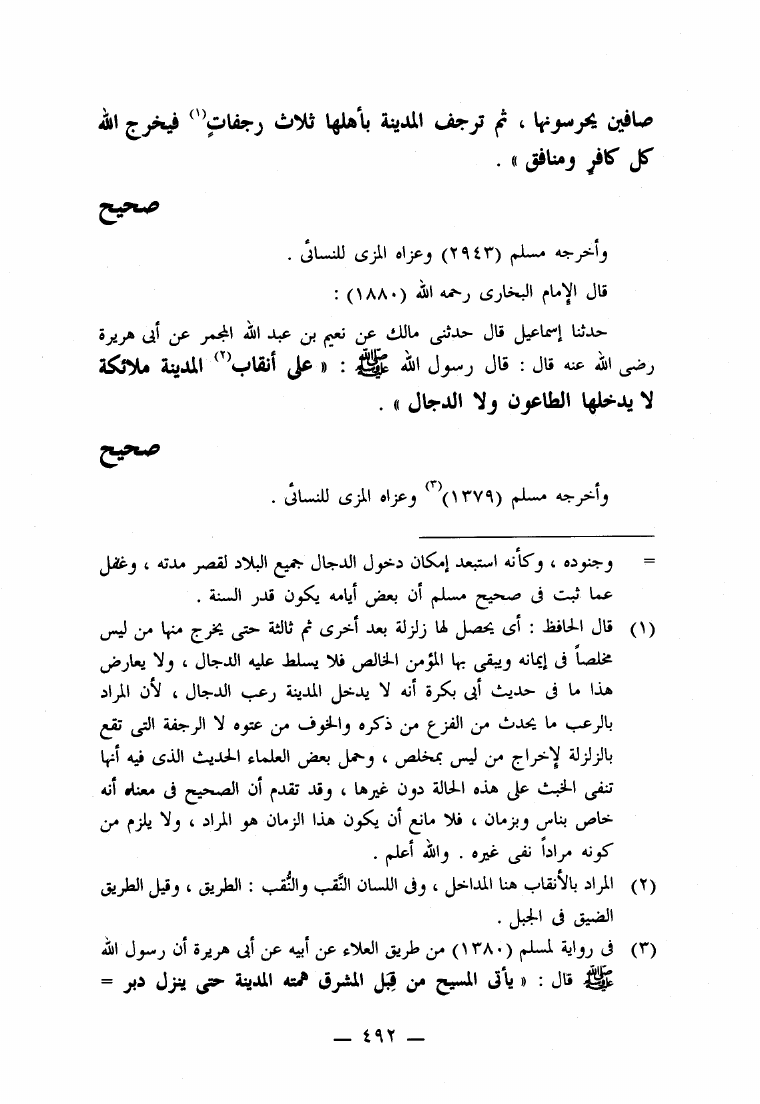 صافين يحرسونها ، ثم ترجف المدينة بأهلها ثلاث رجفاتٍ(١) فيخرج الله
كل كافرٍ ومنافق » .
صحيح
وأخرجه مسلم (٢٩٤٣) وعزاه المزى للنسائى .
قال الإمام البخارى رحمه الله (١٨٨٠) :
حدثنا إسماعيل قال حدثنى مالك عن نعيم بن عبد الله المجمر عن أبى هريرة
رضى الله عنه قال : قال رسول الله ﷺ : « على أنقاب(٢) المدينة ملائكة
لا يدخلها الطاعون ولا الدجال » .
صحيح
وأخرجه مسلم (١٣٧٩)(٣) وعزاه المزى للنسائى .
= وجنوده ، وكأنه استبعد إمكان دخول الدجال جميع البلاد لقصر مدته ، وغفل
عما ثبت فى صحيح مسلم أن بعض أيامه يكون قدر السنة .
(١) قال الحافظ : أى يحصل لها زلزلة بعد أخرى ثم ثالثة حتى يخرج منها من ليس
مخلصاً فى إيمانه ويبقى بها المؤمن الخالص فلا يسلط عليه الدجال ، ولا يعارض
هذا ما فى حديث أبى بكرة أنه لا يدخل المدينة رعب الدجال ، لأن المراد
بالرعب ما يحدث من الفزع من ذكره والخوف من عتوه لا الرجفة التى تقع
بالزلزلة لإخراج من ليس بمخلص ، وحمل بعض العلماء الحديث الذى فيه أنها
تنفى الخبث على هذه الحالة دون غيرها ، وقد تقدم أن الصحيح فى معناه أنه
خاص بناس وبزمان ، فلا مانع أن يكون هذا الزمان هو المراد ، ولا يلزم من
كونه مراداً نفى غيره . والله أعلم .
(٢) المراد بالأنقاب هنا المداخل ، وفى اللسان النَّقب والنُّقب : الطريق ، وقيل الطريق
الضيق فى الجبل .
(٣) فى رواية لمسلم (١٣٨٠) من طريق العلاء عن أبيه عن أبى هريرة أن رسول الله
ﷺ قال : « يأتى المسيح من قِبَل المشرق همته المدينة حتى ينزل دبر =
— ٤٩٢ —